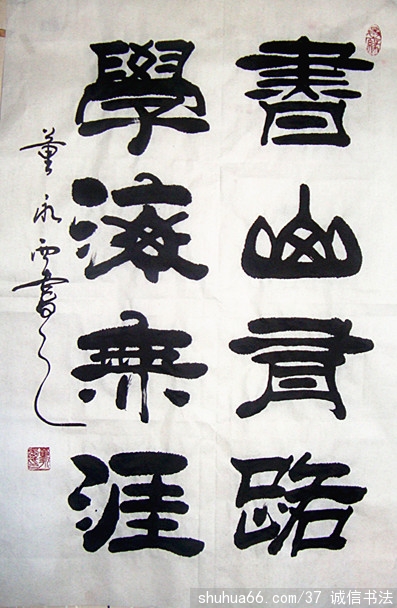 書山有路
學海無涯
董永西書之
shuhua66.com/37 诚信书法